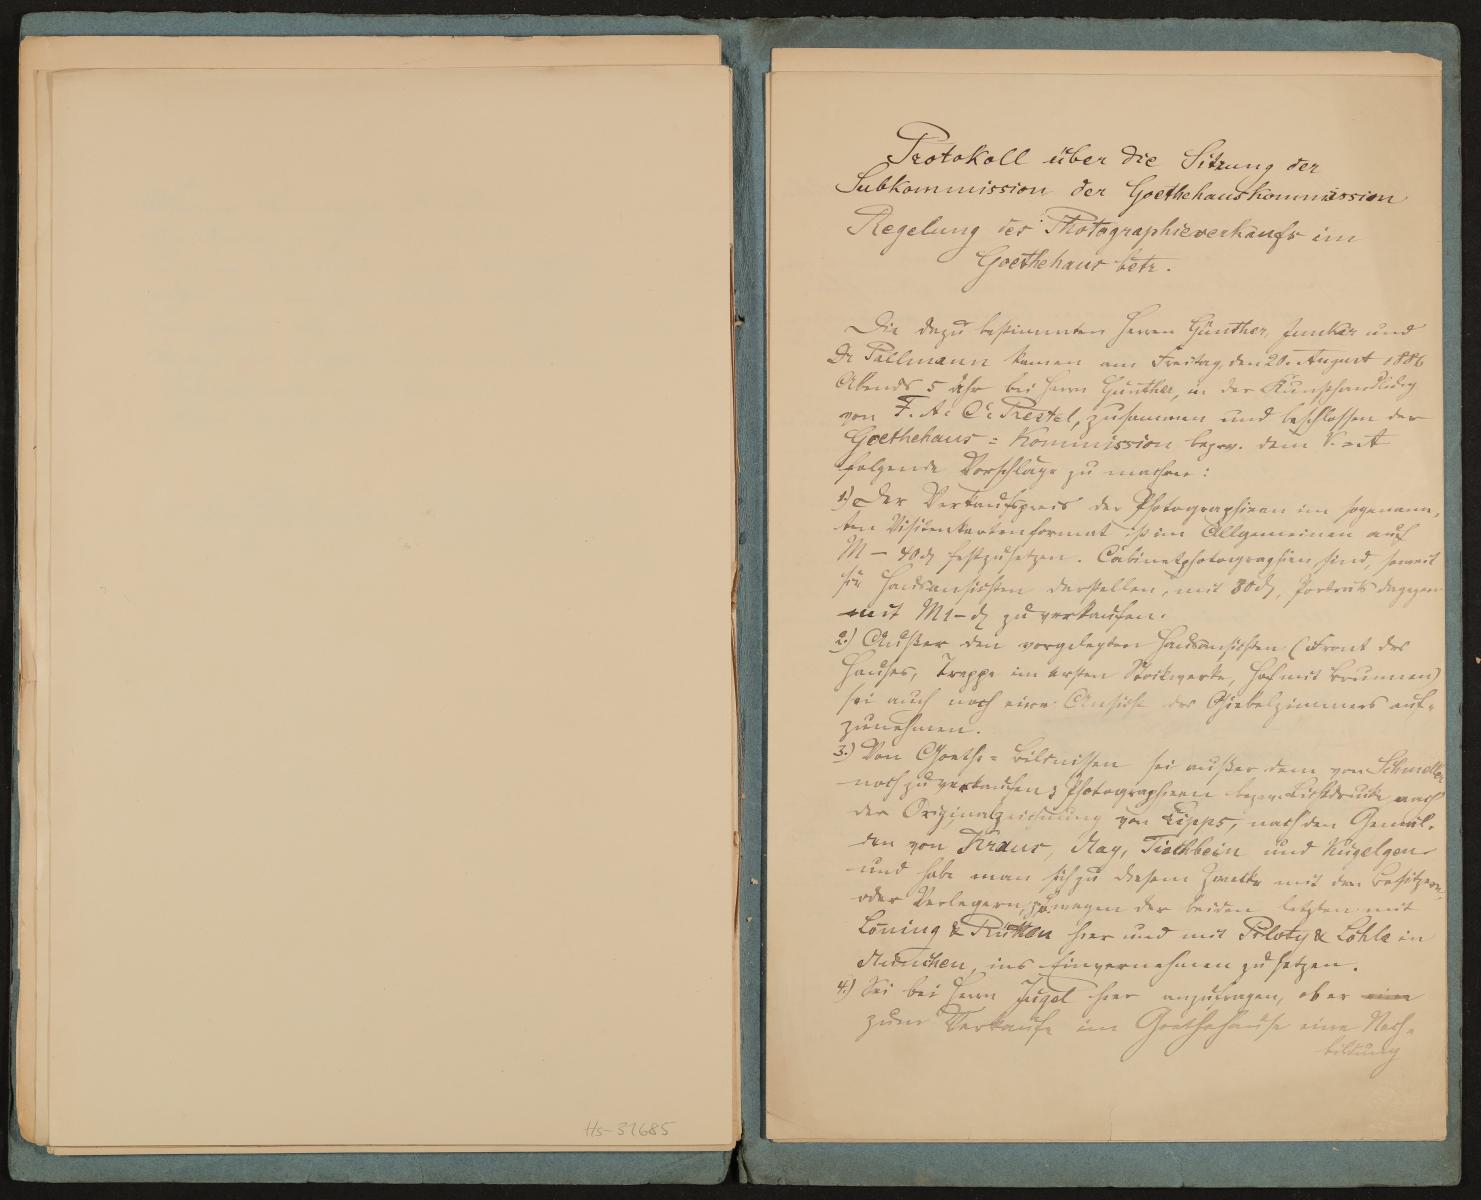 Hs-31685
Protokoll über die Sitzung der
Subkommission der Goethehauskommission
Regelung des Photographieverkaufs im
Goethehaus betr.
Die dazu bestimmten Herren Günther, Junker und
Dr Pallmann kamen am Freitag, den 20. August 1886
Abends 5 Uhr bei Herrn Günther, in der Kunsthandlung
von F. A. C. Prestel, zusammen und beschlossen der
Goethehaus = Kommission bezw. dem V. = A
folgende Vorschläge zu machen:
1.) Der Verkaufspreis der Photographieen im sogenann-
ten Visitenkartenformat ist im Allgemeinen auf
M – 40 ₰ festzusetzen. Cabinetphotographien sind, soweit
sie Hausansichten darstellen, mit 80 ₰, Portraits dagegen
mit M 1 – ₰ zu verkaufen.
2.) Außer den vorgelegten Hausansichten (Front des
Hauses, Treppe im ersten Stockwerke, Hof mit Brunnen)
sei auch noch eine Ansicht des Giebelzimmers auf-
zunehmen.
3.) Von Goethe = Bildnissen sei außer dem von Schmeller
noch zu verkaufen: Photographieen bezw. Lichtdrucke nach
der Originalzeichnung von Lipps, nach den Gemäl-
den von Kraus, May, Tischbein und Kügelgen
und habe man sich zu diesem Zwecke mit den Besitzern
oder Verlegern, wegen der beiden letzten mit
Löning & Rütten hier und mit Piloty & Löhle in
München, ins Einvernehmen zu setzen.
4.) Sei bei Herrn Jügel hier anzufragen, ob er
zum Verkaufe im Goethehause eine Nach-
bildung